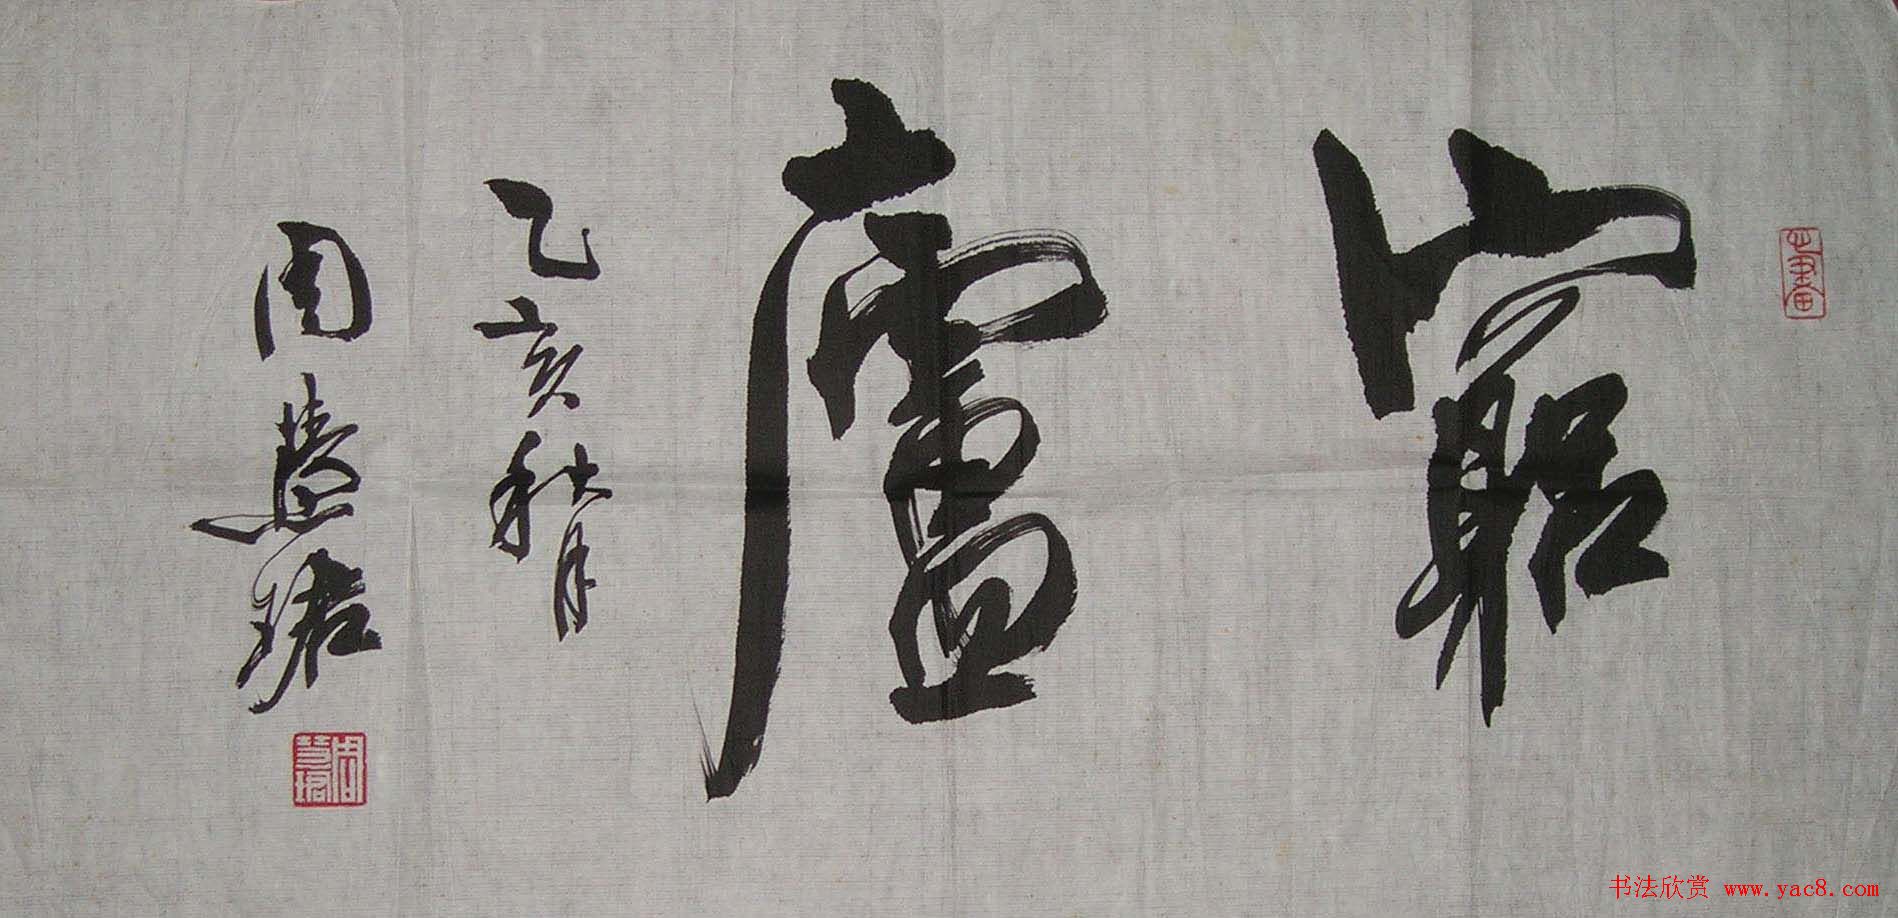 窮廬
乙亥秋月
周慧珺
周慧珺
书法欣赏 www.yac8.com